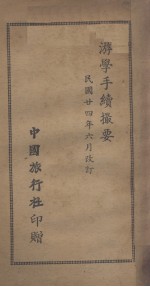 游學手續撮要
民國廿四年六月改訂
中國旅行社印贈